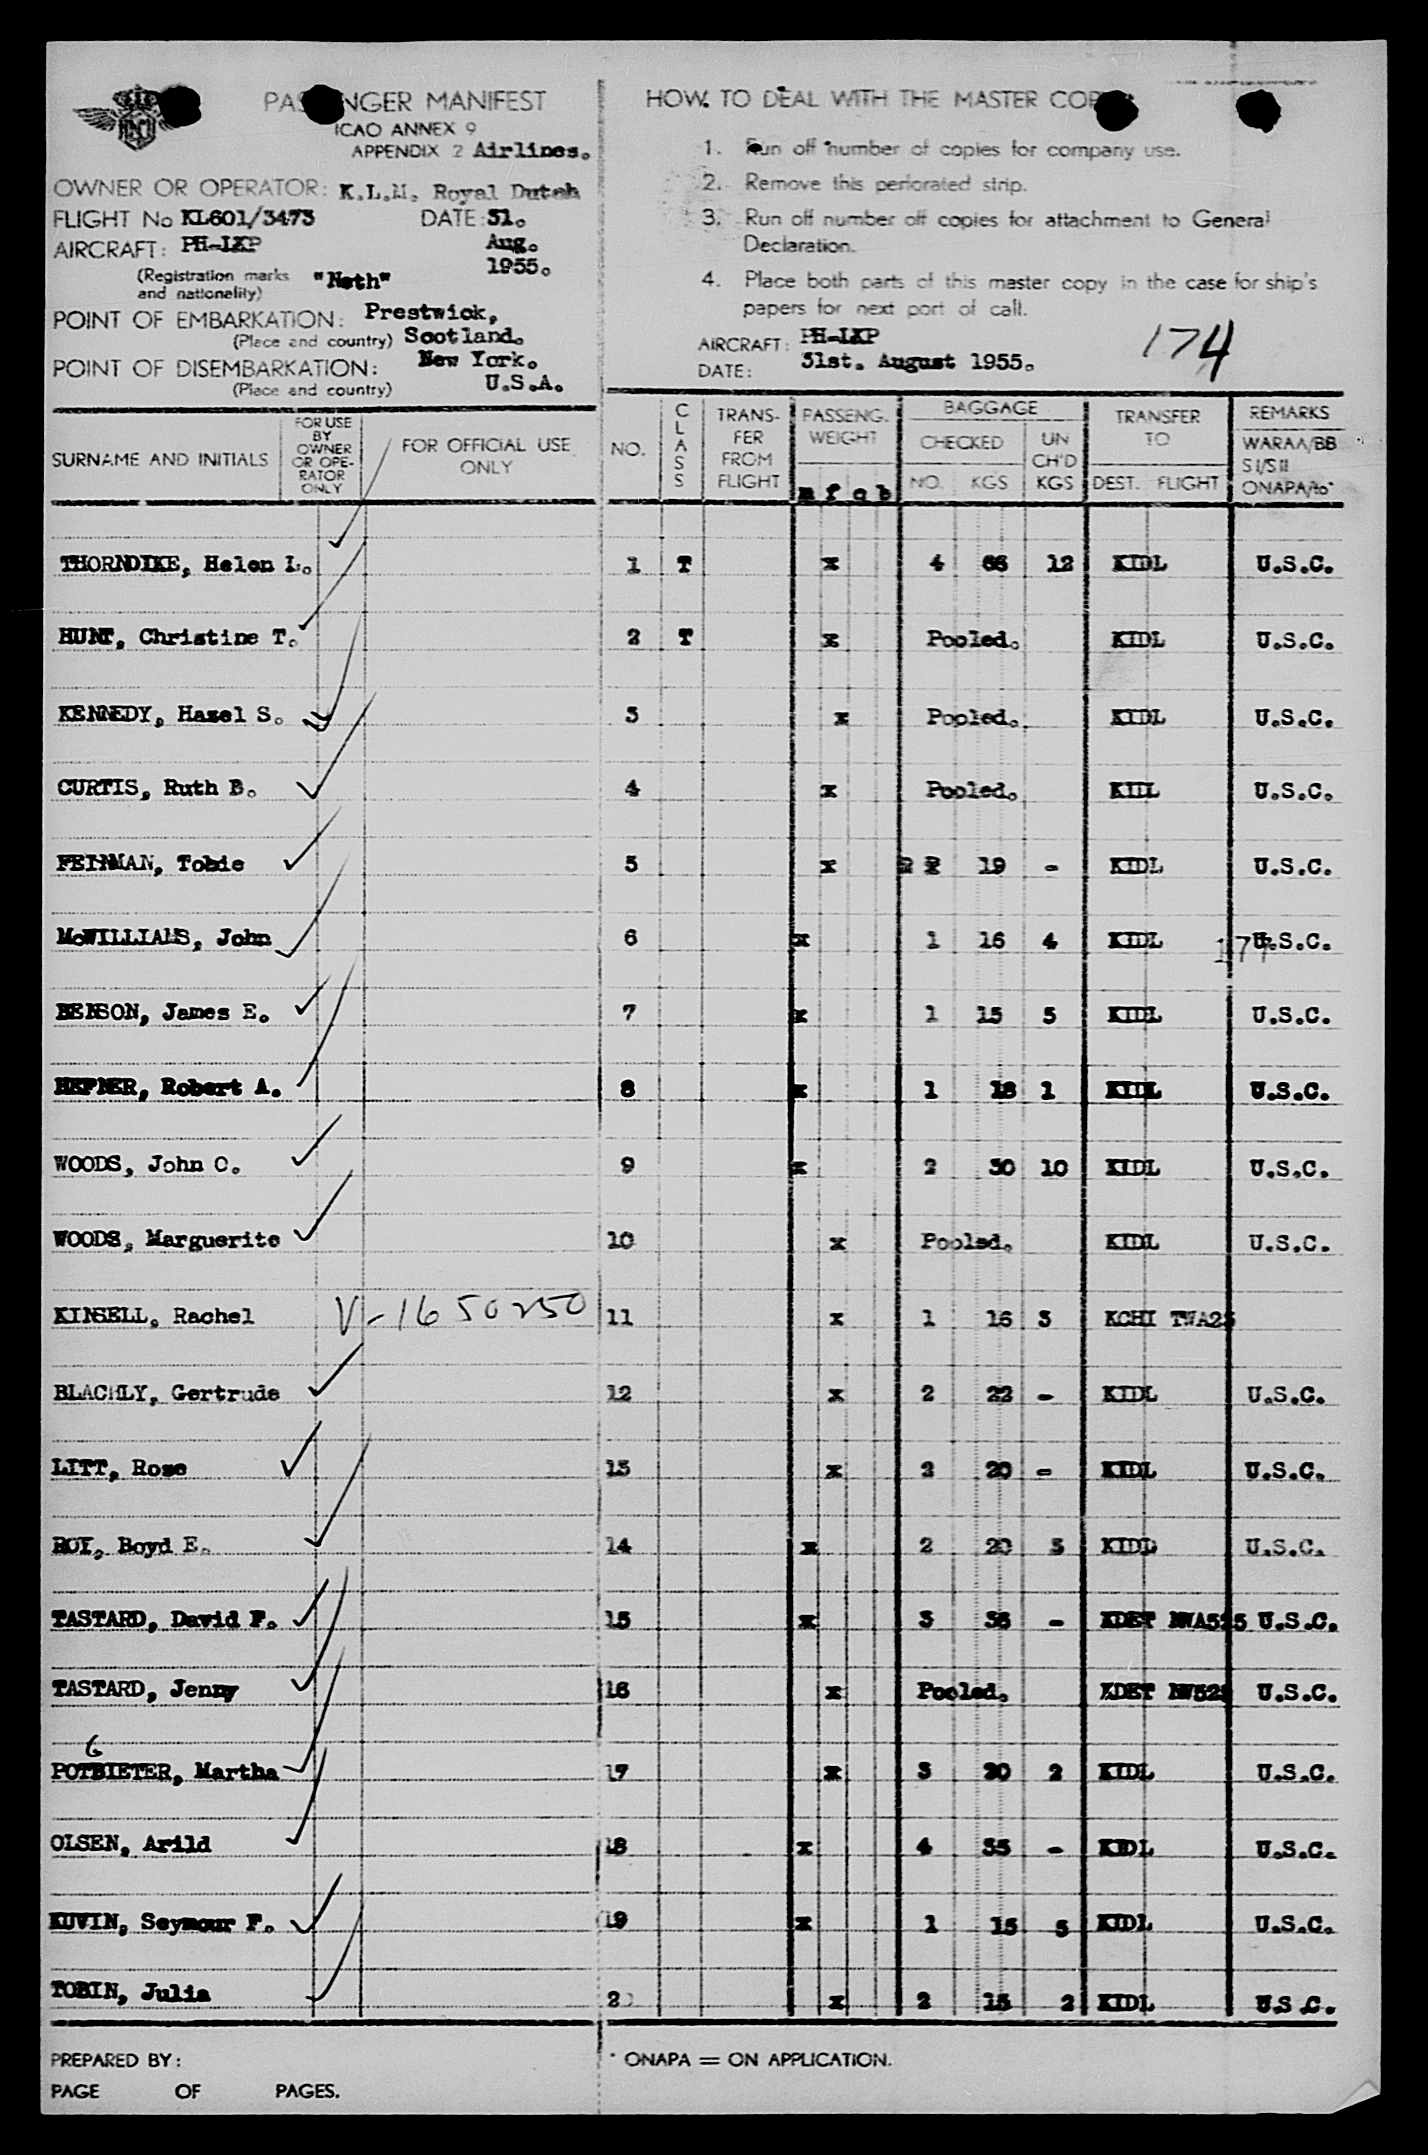 PASSENGER MANIFEST
ICAO ANNEX 9
APPENDIX 2 Airlines.
OWNER OR OPERATOR: K.L.M. Royal Dutch
FLIGHT No KL601/3473 DATE: 31.
AIRCRAFT: PH-LKP Aug.
(Registration marks and nationality) "Neth" 1955.
POINT OF EMBARKATION: Prestwick,
(Place and country) Scotland.
POINT OF DISEMBARKATION: New York.
(Place and country) U.S.A.
HOW TO DEAL WITH THE MASTER COPY
1. Run off number of copies for company use.
2. Remove this perforated strip.
3. Run off number off copies for attachment to General
Declaration.
4. Place both parts of this master copy in the case for ship's
papers for next port of call.
AIRCRAFT: PH-LKP
DATE: 31st. August 1955.
174
SURNAME AND INITIALS FOR USE BY OWNER OR OPE-RATOR ONLY FOR OFFICIAL USE ONLY NO. CLASS TRANS-FER FROM FLIGHT PASSENG. WEIGHT m f c b BAGGAGE CHECKED NO. KGS UN CH'D KGS TRANSFER TO DEST. FLIGHT REMARKS WARAA/BB SI/SII ONAPA/to*
THORNDIKE, Helen L. 1 T x 4 66 12 KIDL U.S.C.
HUNT, Christine T. 2 T x Pooled. KIDL U.S.C.
KENNEDY, Hazel S. 3 x Pooled. KIDL U.S.C.
CURTIS, Ruth B. 4 x Pooled. KIDL U.S.C.
FEINMAN, Tobie 5 x 2 19 - KIDL U.S.C.
McWILLIAMS, John 6 x 1 16 4 KIDL U.S.C.
BENSON, James E. 7 x 1 15 5 KIDL U.S.C.
HEPNER, Robert A. 8 x 1 18 1 KIDL U.S.C.
WOODS, John C. 9 x 2 30 10 KIDL U.S.C.
WOODS, Marguerite 10 x Pooled. KIDL U.S.C.
KINSELL, Rachel V-1650250 11 x 1 16 3 KCHI TWA25
BLACHLY, Gertrude 12 x 2 22 - KIDL U.S.C.
LITT, Rose 13 x 2 20 - KIDL U.S.C.
ROY, Boyd E. 14 x 2 20 3 KIDL U.S.C.
TASTARD, David F. 15 x 3 36 - KDET NWA525 U.S.C.
TASTARD, Jenny 16 x Pooled. KDET U.S.C.
G
POTBIETER, Martha 17 x 3 30 2 KIDL U.S.C.
OLSEN, Arild 18 x 4 35 - KIDL U.S.C.
KUVIN, Seymour F. 19 x 1 15 5 KIDL U.S.C.
TOBIN, Julia 20 x 2 15 2 KIDL U.S.C.
PREPARED BY:
PAGE OF PAGES.
* ONAPA = ON APPLICATION.